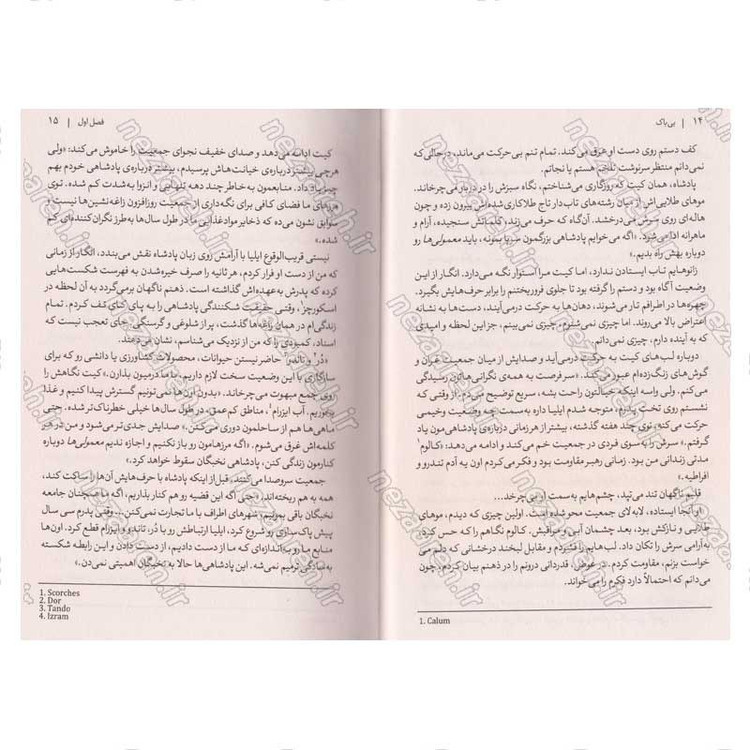 ۱۴ | بی‌باک
کف دستم روی دست او عرق می‌کند. تمام تنم بی‌حرکت می‌ماند، درحالی‌که
نمی‌دانم منتظر سرنوشت تلخم هستم یا نجاتم.
پادشاه، همان کیت که روزگاری می‌شناختم، نگاه سبزش را در دربار می‌چرخاند.
موهای طلایی‌اش از میان رشته‌های تاب‌دار تاج طلاکاری‌شده‌اش بیرون زده و چون
هاله‌ای روی سرش می‌درخشد. آنگاه که حرف می‌زند، کلماتش سنجیده، آرام و
ماهرانه ادا می‌شود. «اگه می‌خوایم پادشاهی بزرگمون سرپا بمونه، باید معمولی‌ها رو
دوباره بهش راه بدیم.»
زانوهایم تاب ایستادن ندارد، اما کیت مرا استوار نگه می‌دارد. انگار از این
وضعیت آگاه بود و دستم را گرفته بود تا جلوی فروریختنم را برابر حرف‌هایش بگیرد.
چهره‌ها در اطرافم تار می‌شوند، دهان‌ها به حرکت درمی‌آیند، دست‌ها به نشانه
اعتراض بالا می‌روند. اما چیزی نمی‌شنوم، چیزی نمی‌بینم، جز این لحظه و امیدی
که به آینده دارم. چیزی نمی‌دانم.
دوباره لب‌های کیت به حرکت درمی‌آید و صدایش از میان جمعیت غران و
گوش‌های زنگ‌زده‌ام عبور می‌کند. «سر فرصت به همه‌ی نگرانی‌هاتون رسیدگی
می‌کنم. ولی واسه اینکه خیالتون راحت بشه، سریع توضیح می‌دم. از وقتی که
نشستم روی تخت پدرم، متوجه شدم ایلیا داره به‌سمت چه وضعیت وخیمی
حرکت می‌کنه. توی چند هفته گذشته، بیشتر از هرزمانی درباره‌ی پادشاهی‌مون یاد
گرفتم.» سرش را به‌سوی فردی در جمعیت خم می‌کند و ادامه می‌دهد: «کالوم۱
مدتی زندانی من بود. زمانی رهبر مقاومت بود و فکر می‌کردم اون یه آدم تندرو و
افراطیه.»
قلبم ناگهان تند می‌تپد، چشم‌هایم به‌سمت او می‌چرخد...
او آنجا ایستاده، لابه‌لای جمعیت محو شده است. اولین چیزی که دیدم، موهای
طلایی و نازکش بود، بعد چشمان آبی و مراقبش. کالوم نگاهم را که حس کرد،
به‌آرامی سرش را تکان داد. لب‌هایم را فشردم و مقابل لبخند درخشانی که دلم می
خواست بزنم، مقاومت کردم. در عوض، قدردانی درونم را در ذهنم بیان کردم، چون
می‌دانم که احتمالاً دارد فکرم را می‌خواند.
1. Calum
فصل اول | ۱۵
کیت ادامه می‌دهد و صدای خفیف نجوای جمعیت را خاموش می‌کند: «ولی
هرچی بیشتر درباره‌ی خیانت‌هاش پرسیدم، بیشتر درباره‌ی پادشاهی خودم بهم
چیز یاد داد. منابعمون به خاطر چند دهه تنهایی و انزوا به‌شدت کم شده. توی
ما فضای کافی برای نگه‌داری از جمعیت روزافزون زاغه‌نشین‌ها نیست و
سوابق نشون می‌ده که ذخایر موادغذایی ما در طول سال‌ها به‌طرز نگران‌کننده‌ای کم
شده.»
نیستی قریب‌الوقوع ایلیا با آرامش روی زبان پادشاه نقش می‌بندد، انگار از زمانی
که من از دست او فرار کردم، هر ثانیه را صرف خیره‌شدن به فهرست شکست‌هایی
کرده که پدرش به‌عهده‌اش گذاشته است. ذهنم ناگهان برمی‌گردد به آن لحظه در
اسکورچز۱، وقتی حقیقت شکنندگی پادشاهی را به پای کای کف کردم. تمام
زندگی‌ام در همان زاغه‌ها گذشت، پر از شلوغی و گرسنگی. جای تعجب نیست که
اسناد، کمبودی را که من از نزدیک می‌شناسم، نشان می‌دهند.
«دُر۲ و تاندو۳ حاضر نیستن حیوانات، محصولات کشاورزی یا دانشی رو که برای
سازگاری با این وضعیت سخت لازم داریم، با ما درمیون بذارن.» کیت نگاهش را
روی جمع مبهوت می‌چرخاند. «بدون اون‌ها نمی‌تونیم گسترش پیدا کنیم و غذا
بخوریم. آب ایزرام۴، مناطق کم‌عمق، در طول سال‌ها خیلی خطرناک‌تر شده. حتی
ماهی‌ها هم از ساحلمون دوری می‌کنن.» صدایش جدی‌تر می‌شود و من در هر
کلمه‌اش غرق می‌شوم. «اگه مرزهامون رو باز نکنیم و اجازه ندیم معمولی‌ها دوباره
کنارمون زندگی کنن، پادشاهی نخبگان سقوط خواهد کرد.»
جمعیت سروصدا می‌کنند. قبل از اینکه پادشاه با حرف‌هایش آن‌ها را ساکت کند،
همه به هم ریخته‌اند: «حتی اگه این قضیه رو هم کنار بذاریم، اگه ما همچنان جامعه
نخبگان باقی بمونیم، شهرهای اطراف با ما تجارت نمی‌کنن... وقتی پدرم سی سال
پیش پاک‌سازی رو شروع کرد، ایلیا ارتباطش رو با دُر، تاندو و ایزرام قطع کرد. اون‌ها
منابع ما رو به‌اندازه‌ای که ما از دست دادیم، از دست دادن و این رابطه شکسته
به‌سادگی ترمیم نمی‌شه. این پادشاهی‌ها حالا به نخبگان اهمیتی نمی‌دن.»
1. Scorches
2. Dor
3. Tando
4. Izram
nezaareh.ir